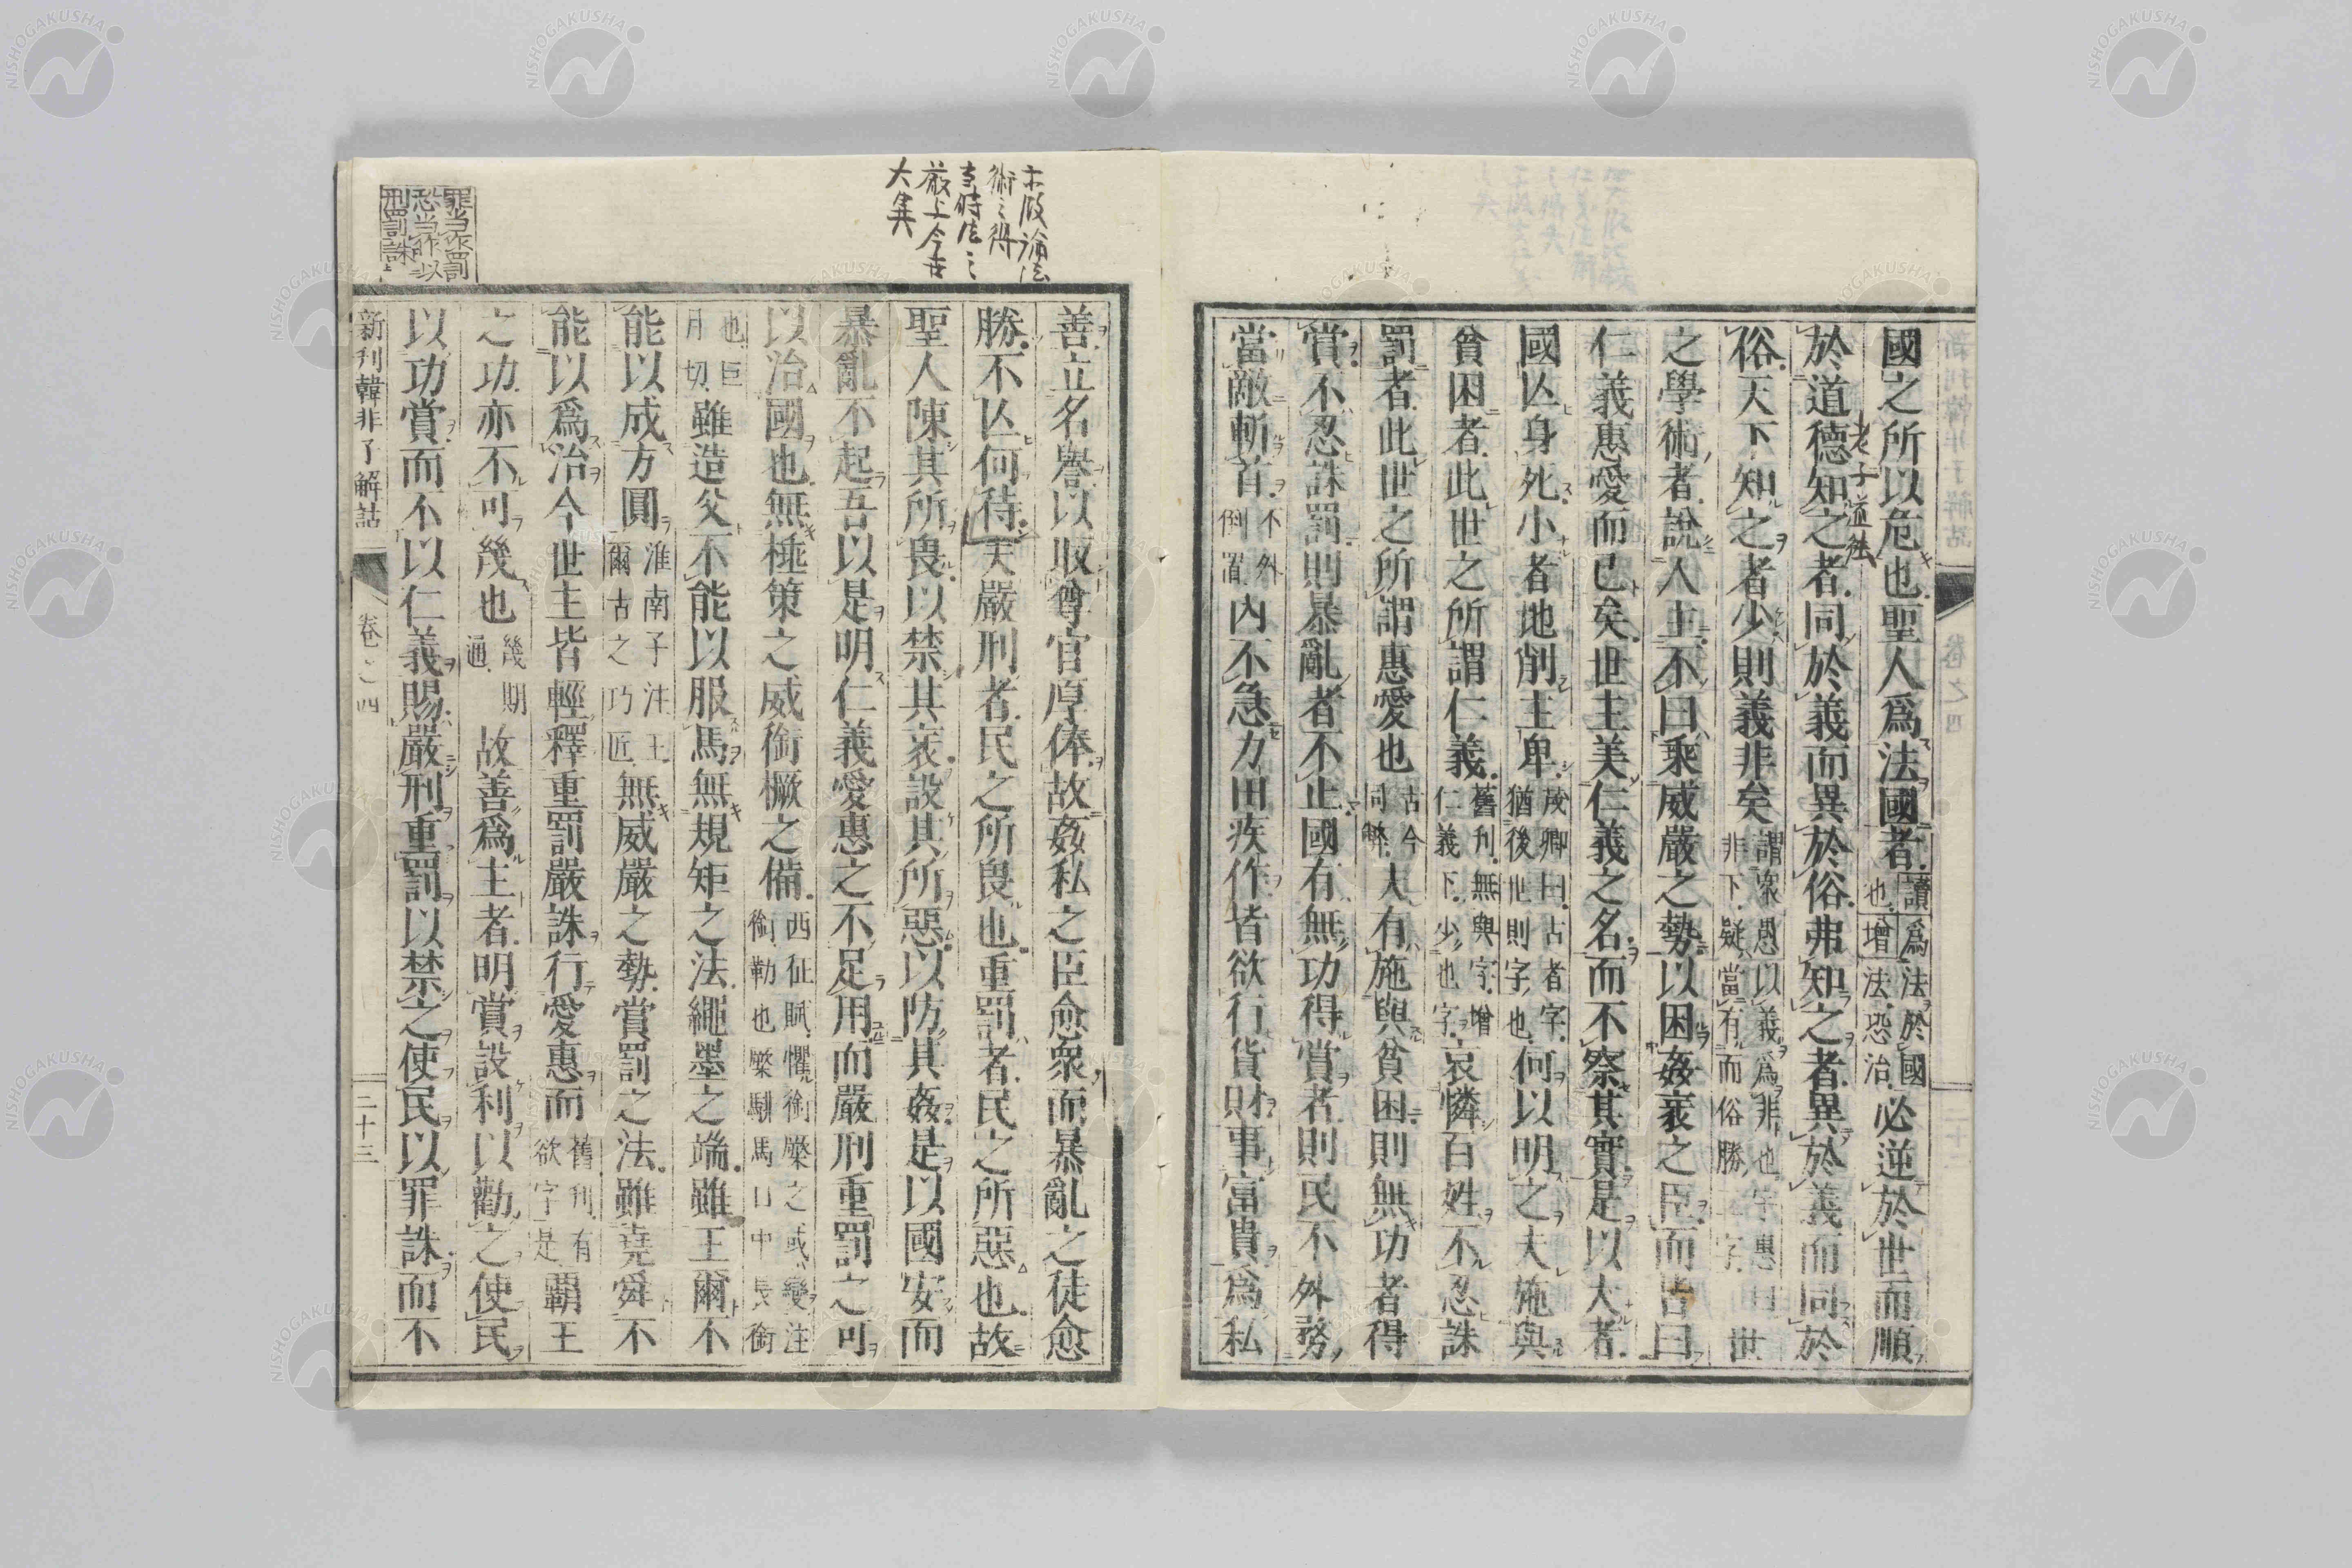 國之所以危也聖人爲法國者讀爲法於國也增法恐治必逆於世而順
老子道法
於道德知之者同於義而異於俗弗知之者異於義而同於
俗天下知之者少則義非矣謂衆愚以義爲非也非下疑當有而俗勝字世
之學術者說人主不曰乘威嚴之勢以困姦衺之臣而皆曰
仁義惠愛而已矣世主美仁義之名而不察其實是以大者
國亾身死小者地削主卑茂卿曰古者字猶後世則字也何以明之夫施與
貧困者此世之所謂仁義舊刊無與字增仁義下少也字哀憐百姓不忍誅
罰者此世之所謂惠愛也古今同弊夫有施與貧困則無功者得
賞不忍誅罰則暴亂者不止國有無功得賞者則民不外務
當敵斬首不外倒置內不急力田疾作皆欲行貨財事富貴爲私
論法
術之得
時法之
嚴上今世
大集
善立名譽以取尊官厚俸故姦私之臣愈衆而暴亂之徒愈
勝不亾何待夫嚴刑者民之所畏也重罰者民之所惡也故
聖人陳其所畏以禁其衺設其所惡以防其姦是以國安而
暴亂不起吾以是明仁義愛惠之不足用而嚴刑重罰之可
以治國也無棰策之威銜橛之備西征賦懼銜橜之或變注銜勒也橜騑馬口中長銜
也巨月切雖造父不能以服馬無規矩之法繩墨之端雖王爾不
能以成方圓淮南子注王爾古之巧匠無威嚴之勢賞罰之法雖堯舜不
能以爲治今世主皆輕釋重罰嚴誅行愛惠而舊刊有欲字是霸王
之功亦不可幾也幾期通故善爲主者明賞設利以勸之使民
以功賞而不以仁義賜嚴刑重罰以禁之使民以罪誅而不
罪当作罰
恐当作以
刑罰誅
新刊韓非子解詁
卷之四
二十三
NISHOGAKUSHA